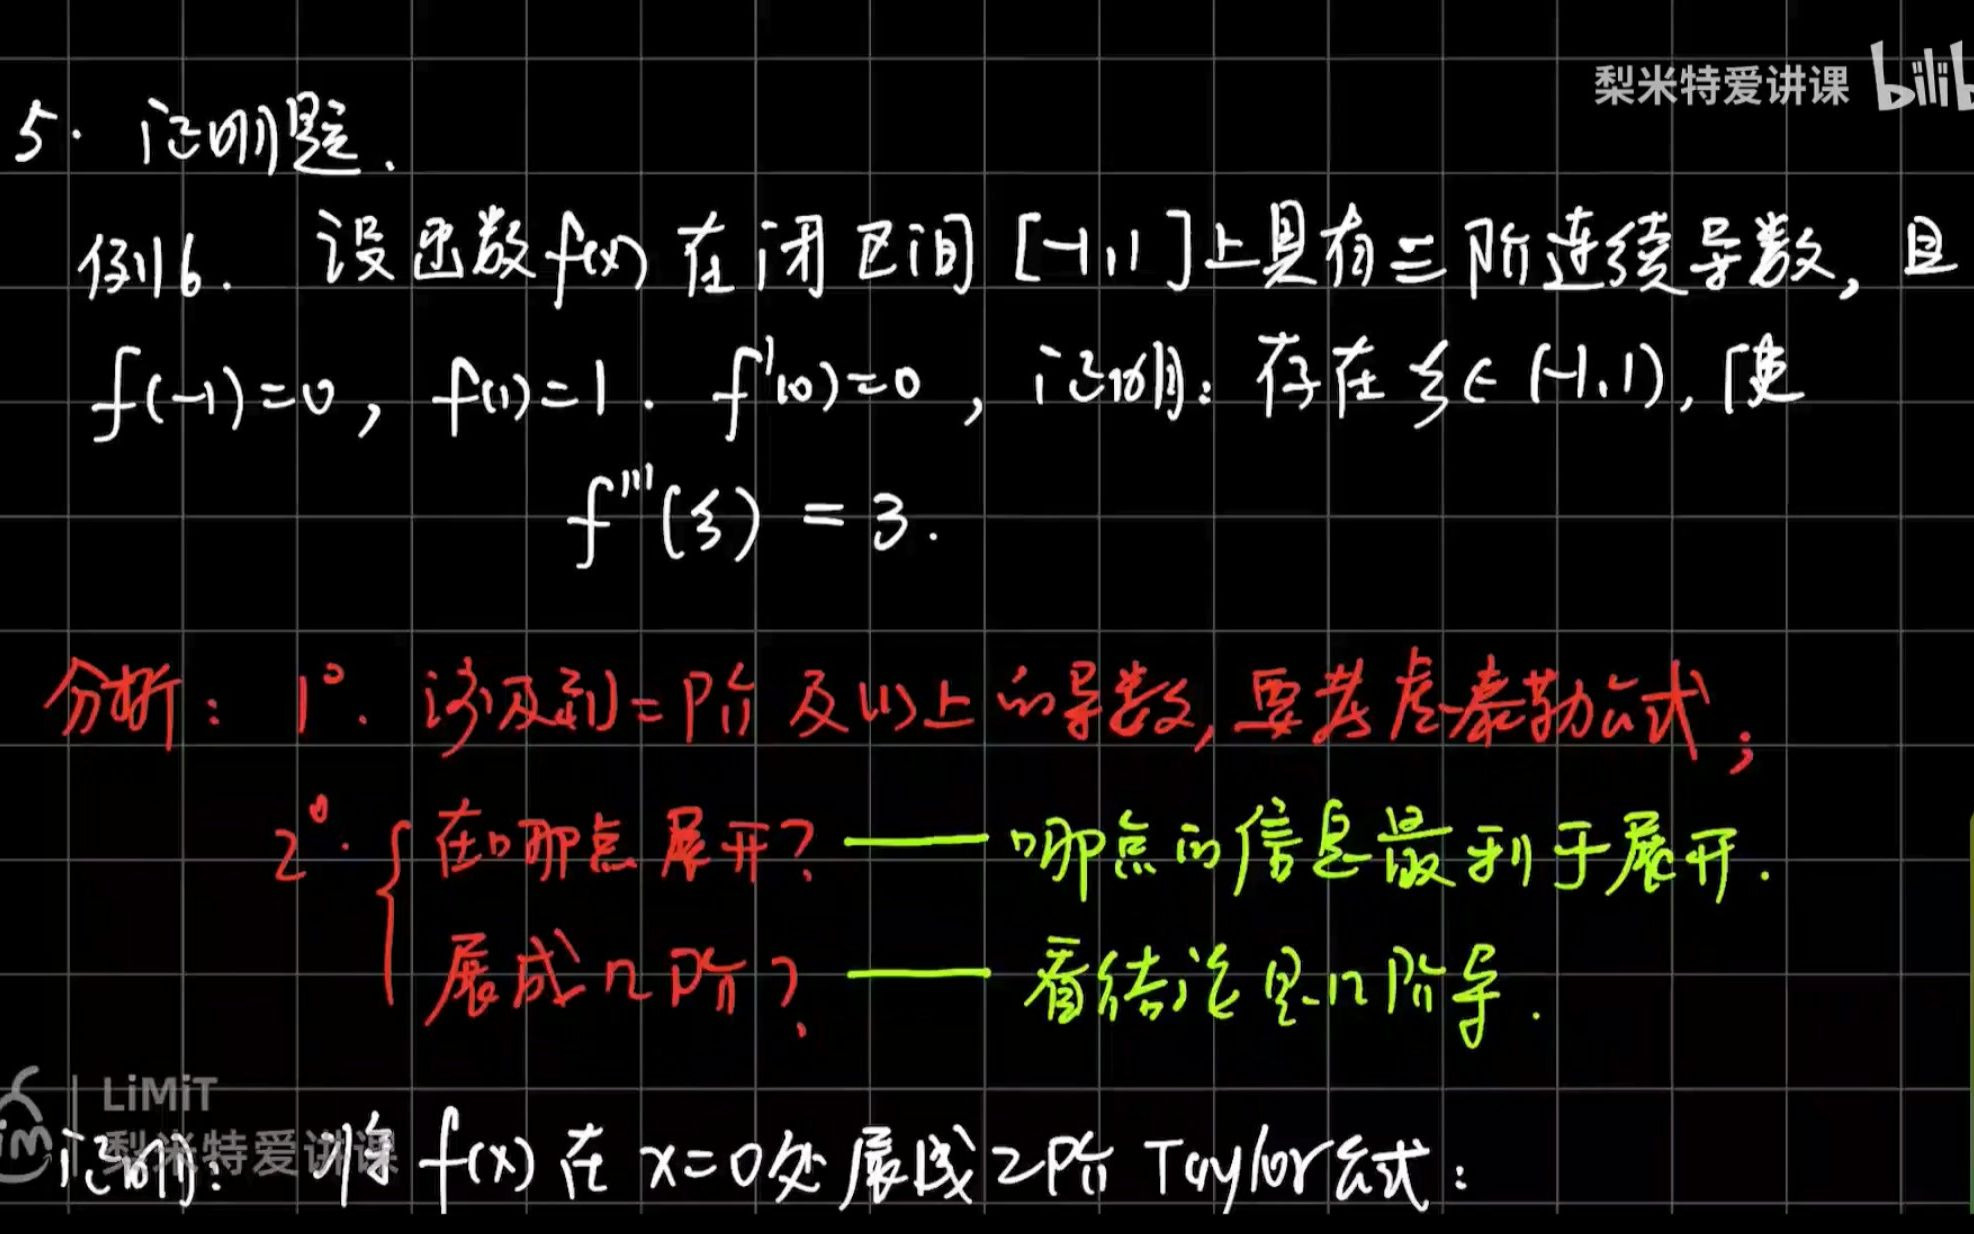 梨米特爱讲课 bilib
5. 证明题.
例6. 设函数f(x)在闭区间[-1,1]上具有三阶连续导数,且
f(-1)=0, f(1)=1. f'(0)=0, 证明:存在ξ∈(-1,1),使
f'''(ξ) = 3.
分析: 1°. 涉及到二阶及以上的导数,要考虑泰勒公式;
2°. { 在哪点展开? —— 哪点的信息最利于展开.
展成几阶? —— 看结论是几阶导.
LiMiT
梨米特爱讲课
证明: 将f(x)在x=0处展成2阶Taylor公式: